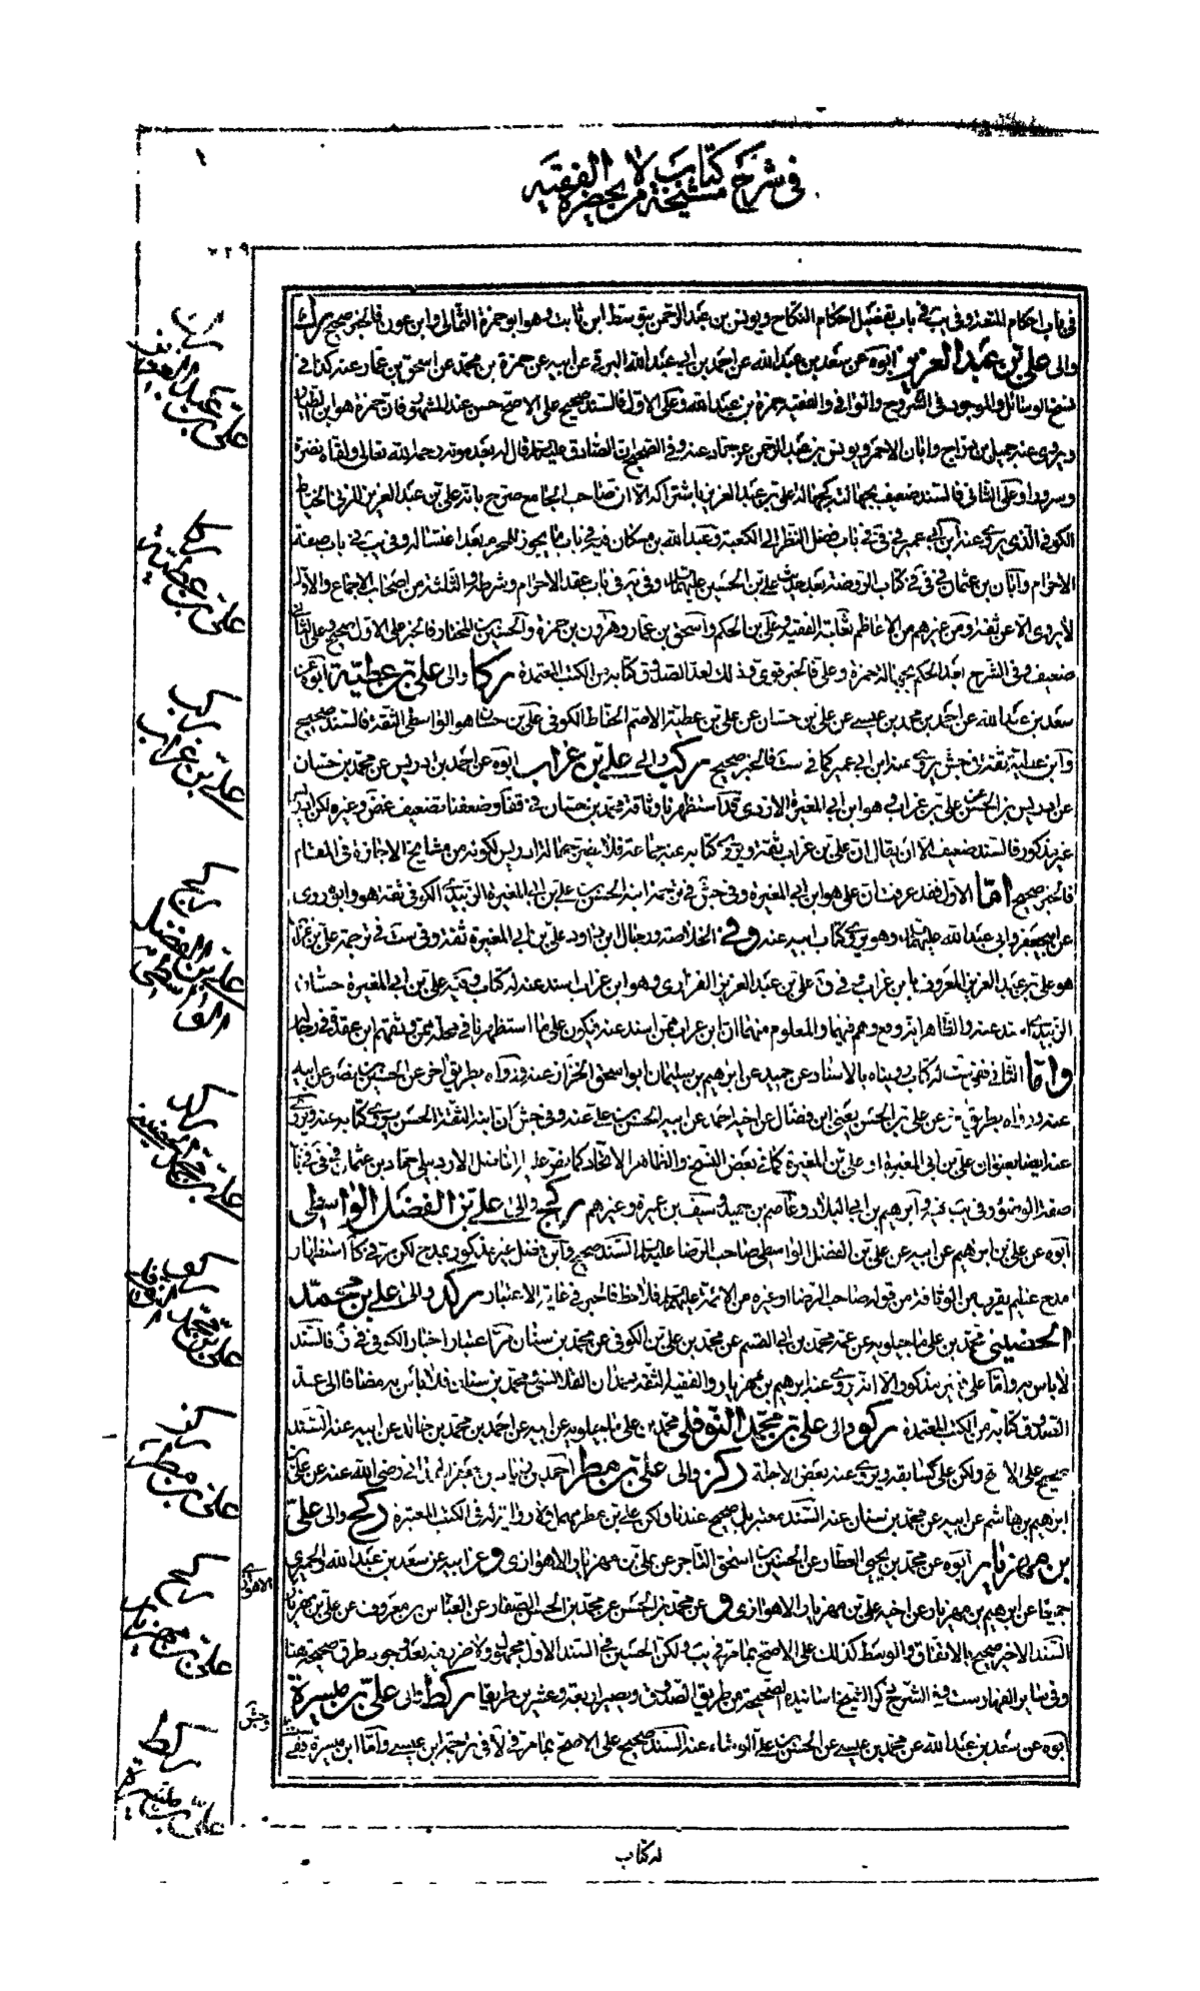 في شرح مشيخة كتاب من لا يحضره الفقيه
٧٣٩
في باب احكام المتعة وفي يب في باب تفضيل احكام النكاح ويونس بن عبد الرحمن بتوسط ابن ثابت وهو ابو حمزة الثمالي وابن عون فالخبر صحيح
والى علي بن عبد العزيز ابوه عن سعد بن عبد الله عن احمد بن ابي عبد الله البرقي عن ابيه عن حمزة بن محمد عن اسحق بن عمار عنه كذا في
نسخ الوسائل والموجود في الشروح والوافي والفقيه حمزة بن عبد الله وعلى الاول فالسند صحيح على الاصح حسن عند المشهور فان حمزة هو ابن
ويروي عنه جميل بن دراج وابان الاحمر ويونس بن عبد الرحمن عن حماد عنه وفي الصحيح ان الصادق عليه السلام قال له بعد موته رحمه الله تعالى ولقاه نضرة
وسرورا وعلى الثاني فالسند ضعيف بجهالته كجهالة علي بن عبد العزيز باشتراكه الا ان صاحب الجامع صرح بانه علي بن عبد العزيز المزني الحناط
الكوفي الذي يروي عنه ابن ابي عمير في في باب فضل النظر الى الكعبة وعبد الله بن مسكان فيه في باب ما يجوز للمحرم بعد اغتساله وفي يب في باب صفة
الاحرام وابان بن عثمان في في كتاب الروضة بعد حديث علي بن الحسين عليهما السلام وفي في باب عقد الاحرام وشرطه والثلثة من اصحاب الاجماع والاول
لا يروي الا عن ثقة ومن غيرهم من الاعاظم ثعلبة الفقيه وعلي بن الحكم واسحق بن عمار وهرون بن حمزة والحسين بن المختار فالخبر على الاول صحيح وعلى الثاني
ضعيف وفي الشرح بجهالة حمزة وعلي فالخبر قوي كذلك لعد الصدوق كتابه من الكتب المعتمدة ركا والى علي بن عطية ابوه عن
سعد بن عبد الله عن احمد بن محمد بن عيسى عن علي بن حسان عن علي بن عطية الاصم الحناط الكوفي علي بن حسان هو الواسطي الثقة فالسند صحيح
وابن عطية ثقة في جش يروي عنه ابن ابي عمير كما في ست فالخبر صحيح ركب والى علي بن غراب ابوه عن احمد بن ادريس عن محمد بن حسان
عن ادريس بن الحسن عن علي بن غراب وهو ابن ابي المغيرة الازدي قد استظهرنا وثاقة محمد بن حسان في وضعفنا تضعيف غض وغيره لكن ادريس
غير مذكور فالسند ضعيف الا ان يقال ان علي بن غراب ثقة ويروي كتابه عنه جماعة فلا يضر جهالة ادريس لكونه من مشايخ الاجازة في المقام
فالخبر صحيح اما الاول فقد عرفت ان علي هو ابن ابي المغيرة وفي جش في ترجمة ابنه الحسن بن علي بن ابي المغيرة الزبيدي الكوفي ثقة هو وابوه روى
عن ابي جعفر وابي عبد الله عليهما السلام وهو يروي كتاب ابيه عنه وفي الخلاصة ورجال ابن داود علي بن ابي المغيرة ثقة وفي ست في ترجمة علي بن غراب
هو علي بن عبد العزيز المعروف بابن غراب وفي ق علي بن عبد العزيز الفزاري وهو ابن غراب اسند عنه له كتاب وفيه علي بن ابي المغيرة حسان
الزبيدي اسند عنه والظاهر انه وقع وهم فيهما والمعلوم منهما ان ابن غراب ممن اسند عنه فيكون على ما استظهرنا في محله ممن وثقهم ابن عقدة في رجاله
واما الثاني ففي ست له كتاب رويناه بالاسناد عن حميد عن ابراهيم بن سليمان ابو اسحق الخزاز عنه ورواه بطريق اخر عن الحسين بن نصر عن ابيه
عنه ورواه بطريق عن علي بن الحسن يعني ابن فضال عن اخيه احمد عن ابيه الحسن بن علي عنه وفي جش ان ابنه الثقة الحسن يروي كتابه عنه ويروي
عنه ايضا بعنوان علي بن ابي المغيرة او علي بن المغيرة كما في بعض النسخ والظاهر الاتحاد كما نص عليه الفاضل الاردبيلي حماد بن عثمان في في باب
صفة الوضوء وفي يب فيه وابراهيم بن ابي البلاد وعاصم بن حميد وسيف بن عميرة وغيرهم ركج والى علي بن الفضل الواسطي
ابوه عن علي بن ابراهيم عن ابيه عن علي بن الفضل الواسطي صاحب الرضا عليه السلام السند صحيح وابن فضل غير مذكور بمدح لكن مر في استظهار
مدح عظيم يقرب من الوثاقة من قوله صاحب الرضا او غيره من الائمة عليهم السلام فلاحظ فالخبر في غاية الاعتبار ركد والى علي بن محمد
الحضيني محمد بن علي ماجيلويه عن عمه محمد بن ابي القسم عن محمد بن علي بن الكوفي عن محمد بن سنان مر اعتبار اخبار الكوفي في فالسند
لا باس به واما علي فغير مذكور الا انه يروي عنه ابراهيم بن مهزيار والفقيه الثقة حمدان القلانسي محمد بن سنان فلا باس به مضافا الى عد
الصدوق كتابه من الكتب المعتمدة ركو والى علي بن محمد النوفلي محمد بن علي ماجيلويه عن ابيه عن احمد بن محمد بن خالد عن ابيه عنه السند
صحيح على الاصح ولكن علي كسابقه ويروي عنه بعض الاجلة ركز والى علي بن مطر احمد بن زياد بن جعفر الهمداني رضي الله عنه عن علي بن
ابراهيم بن هاشم عن ابيه عن محمد بن سنان عنه السند معتبر بل صحيح عندنا ولكن علي بن مطر مهمل ولا رواية له في الكتب المعتبرة ركح والى علي
بن مهزيار ابوه عن محمد بن يحيى العطار عن الحسين بن اسحق التاجر عن علي بن مهزيار الاهوازي وعن ابيه عن سعد بن عبد الله والحميري
جميعا عن ابراهيم بن مهزيار عن اخيه علي بن مهزيار الاهوازي وعن محمد بن الحسن عن محمد بن الحسن الصفار عن العباس بن معروف عن علي بن مهزيار
السند الاخير صحيح بالاتفاق والوسط كذلك على الاصح بما مر في يب ولكن الحسين في السند الاول مجهول ولا ضير فيه بعد وجود طرق صحيحة هنا
وفي ساير الفهارست وفي الشرح ذكر الشيخ اسانيده الصحيحة من طريق الصدوق ويصير اربعة وعشرين طريقا ركط والى علي بن ميسرة
ابوه عن سعد بن عبد الله عن محمد بن عيسى عن الحسن بن علي الوشاء عنه السند صحيح على الاصح بما مر في في ترجمة ابن عيسى واما ابن ميسرة ففي
علي بن عبد العزيز
ركا
علي بن عطية
ركب
علي بن غراب
ركج
علي بن الفضل الواسطي
ركد
علي بن محمد الحضيني
ركو
علي بن محمد النوفلي
ركز
علي بن مطر
ركح
علي بن مهزيار
الاهوازي
وجش
ركط
علي بن ميسرة
له كتاب